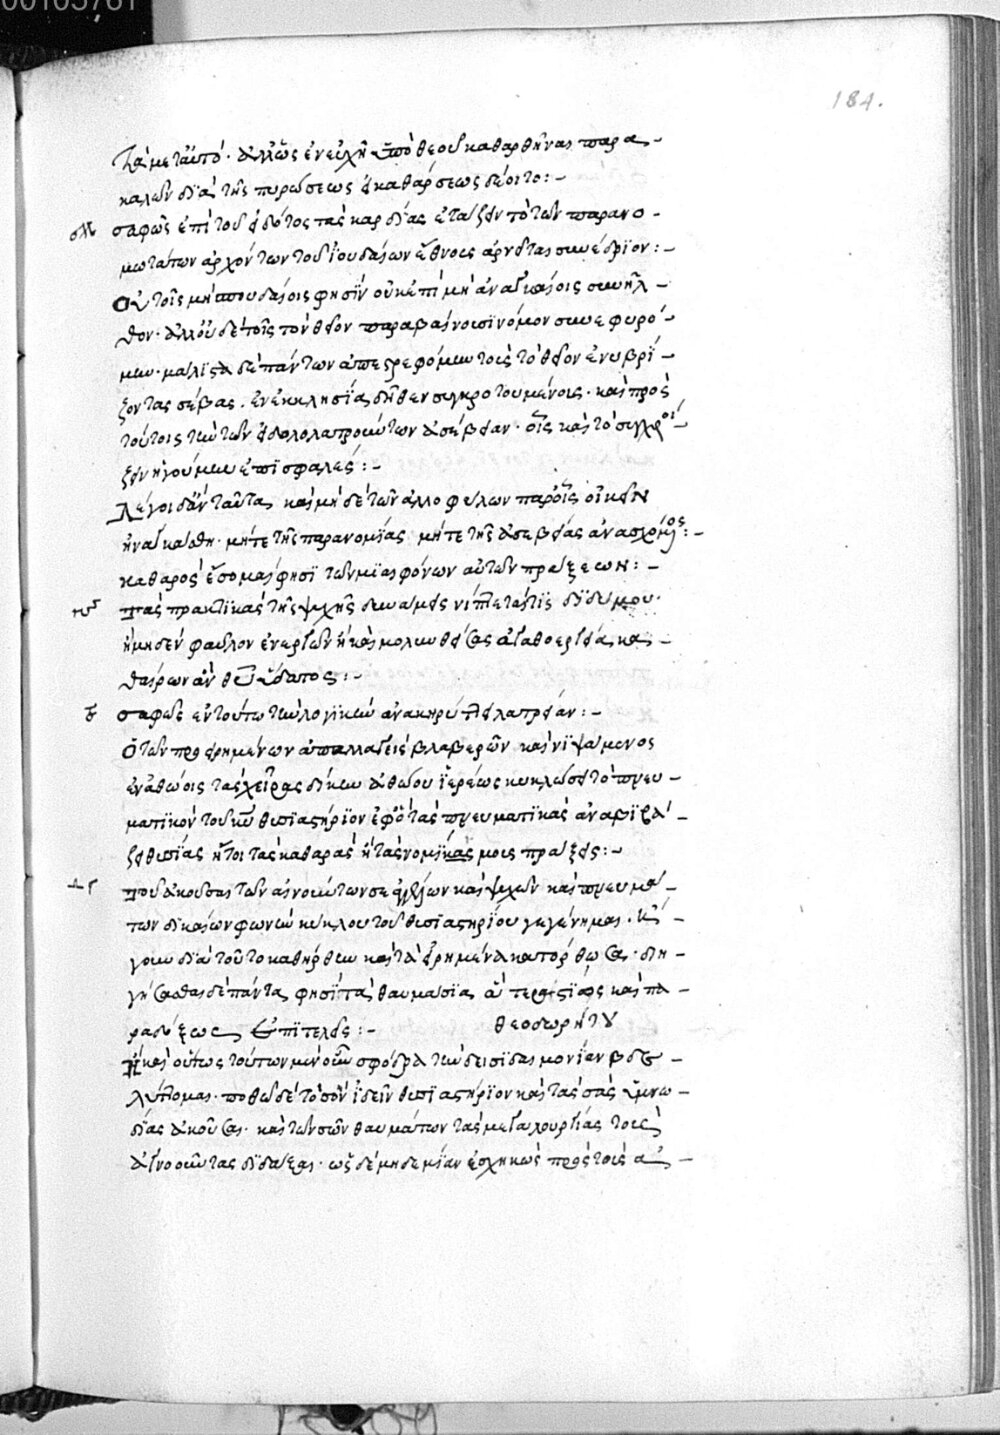 00105761
184.
καλῶν διὰ τῆς πυρώσεως ἢ καθάρσεως δέοιτο:-
σαφῶς ἐπὶ τοῦ εἰδότος τὰς καρδίας ἐτάξεν τὸ τῶν παρανο-
μωτάτων ἀρχόντων τοῦ Ἰουδαίων ἔθνους συνέδριον:-
Οὐ τοῖς μὴ σπουδαίοις φησὶν οὐκ ἐπὶ μὴ ἀναγκαίοις συνῆλ-
θον. ἀλλ' οὐδὲ τοῖς τὸν θεῖον παραβαίνουσι νόμον συνεφυρό-
μην. μάλιστα δὲ πάντων ἀπεστρεφόμην τοὺς τὸ θεῖον ἐνυβρί-
ζοντας σέβας. ἐν ἐκκλησίᾳ δῆθεν συγκροτουμένοις. καὶ πρὸς
τούτοις τὴν τῶν εἰδωλολατρούντων ἀσέβειαν. οἷς καὶ τὸ συγχρο-
ίζειν ἡγούμην ἐπισφαλές:-
Λέγοι δ' ἂν ταῦτα καὶ μηδὲ τῶν ἀλλοφύλων παρ' οἷς οἰκεῖν
ἠναγκάσθη. μήτε τῆς παρανομίας μήτε τῆς ἀσεβείας ἀνασχόμενος:-
καθαρὸς ἔσομαι φησὶ τῶν μιαιφόνων αὐτῶν πράξεων:-
Τὰς πρακτικὰς τῆς ψυχῆς δυνάμεις νίπτεται διδύμου.
ἢ μηδὲν φαῦλον ἐνεργῶν ἢ καὶ μολυνθείσας ἀγαθοεργίᾳ κα-
θαίρων ἀνθ' ὕδατος:-
σαφῶς ἐν τούτῳ τὴν λογικὴν ἀνακηρύττει λατρείαν:-
Ὁ τῶν προειρημένων ἀπαλλαγεὶς βλαβερῶν καὶ νιψάμενος
ἐν ἀθῴοις τὰς χεῖρας δίκην ἀθῴου ἱερέως κυκλώσει τὸ πνευ-
ματικὸν τοῦ κυ θυσιαστήριον ἐφ' ὃ τὰς πνευματικὰς ἀναβιβά-
ζει θυσίας ἤτοι τὰς καθαρὰς ἢ τὰς νομίμους πράξεις:-
Τοῦ ἀκοῦσαι τῶν αἰνούντων σε ἀγγέλων καὶ ψυχῶν καὶ πνευμά-
των δικαίων φωνὴν κύκλου τοῦ θυσιαστηρίου γεγένημαι.
γουν διὰ τοῦτο καθήρθην καὶ τὰ εἰρημένα κατορθῶσαι. διη-
γήσασθαι δὲ πάντα φησὶ τὰ θαυμάσια τεράστιος καὶ πα-
ραδόξως ἐπιτελεῖς:- θεοδωρήτου
καὶ οὕτως τούτων μὲν οὖν σφόδρα τὴν δεισιδαιμονίαν βδε-
λύττομαι. ποθῶ δὲ τὸ σὸν ἰδεῖν θυσιαστήριον καὶ τὰς σὰς ὑμνω-
δίας ἀκοῦσαι. καὶ τῶν σῶν θαυμάτων τὰς μεγαλουργίας τοὺς
ἀγνοοῦντας διδάξαι. ὡς δὲ μηδεμίαν ἐσχηκὼς πρὸς τοὺς